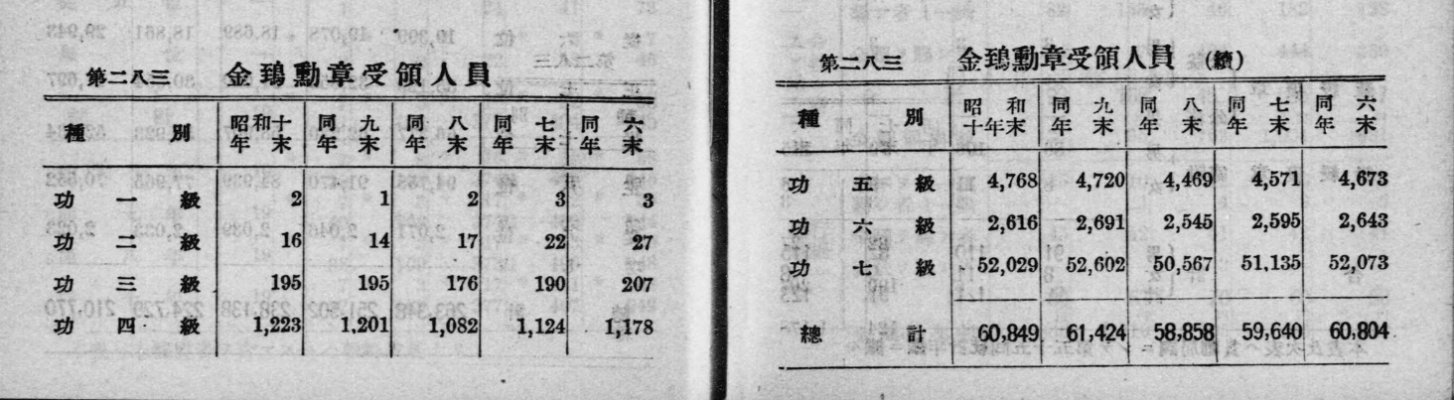 第二八三 金鵄勳章受領人員
種別 昭和十年末 同九年末 同八年末 同七年末 同六年末
功一級 2 1 2 3 3
功二級 16 14 17 22 27
功三級 195 195 176 190 207
功四級 1,223 1,201 1,082 1,124 1,178
第二八三 金鵄勳章受領人員 (續)
種別 昭和十年末 同九年末 同八年末 同七年末 同六年末
功五級 4,768 4,720 4,469 4,571 4,673
功六級 2,616 2,691 2,545 2,595 2,643
功七級 52,029 52,602 50,567 51,135 52,073
總計 60,849 61,424 58,858 59,640 60,804